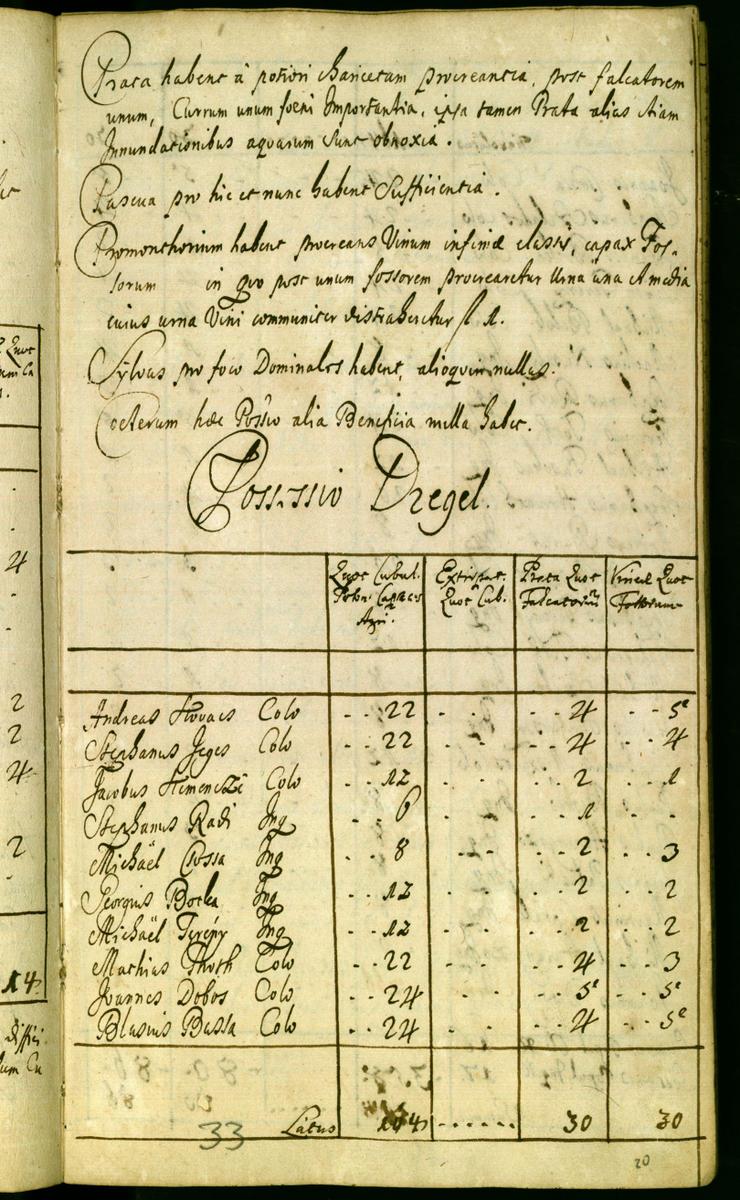 Prata habent à potiori Charicetam procreantia, post falcatorem
unum, Currum unum foeni Importantia, ipsa tamen Prata alias etiam
Innundationibus aquarum sunt obnoxia.
Pascua pro hic et nunc habent Sufficientia.
Promonthorium habent procreans Vinum infimae classis, capax Fos-
sorum in quo post unum fossorem procrearetur Urna una et media
cuius urna Vini communiter distraheretur fl 1.
Sylvas pro foco Dominales habent, alioquin nullas.
Coeterum haec Possio alia Beneficia nulla habet.
Possessio Dregel.
Quot Cubul. Poson. Capaces Agri. Extirpat. Quot Cub. Prata Quot Falcatorum Vineae Quot Fossorum
Andreas Kovacs Colo - - 22 - - - - 4 - - 5
Stephanus Jeges Colo - - 22 - - - - 4 - - 4
Jacobus Kemenczi Colo - - 12 - - - - 2 - - 1
Stephanus Radi Inq - - 6 - - - - 1 - - -
Michaël Cossa Inq - - 8 - - - - 2 - - 3
Georgius Inq - - 12 - - - - 2 - - 2
Michaël Inq - - 12 - - - - 2 - - 2
Mathias Thoth Colo - - 22 - - - - 4 - - 3
Joannes Dobos Colo - - 24 - - - - 5 - - 5
Blasius Bassa Colo - - 24 - - - - 4 - - 5
33 Latus 164 - - - - - - 30 30
20
2
4
2
2
4
2
14